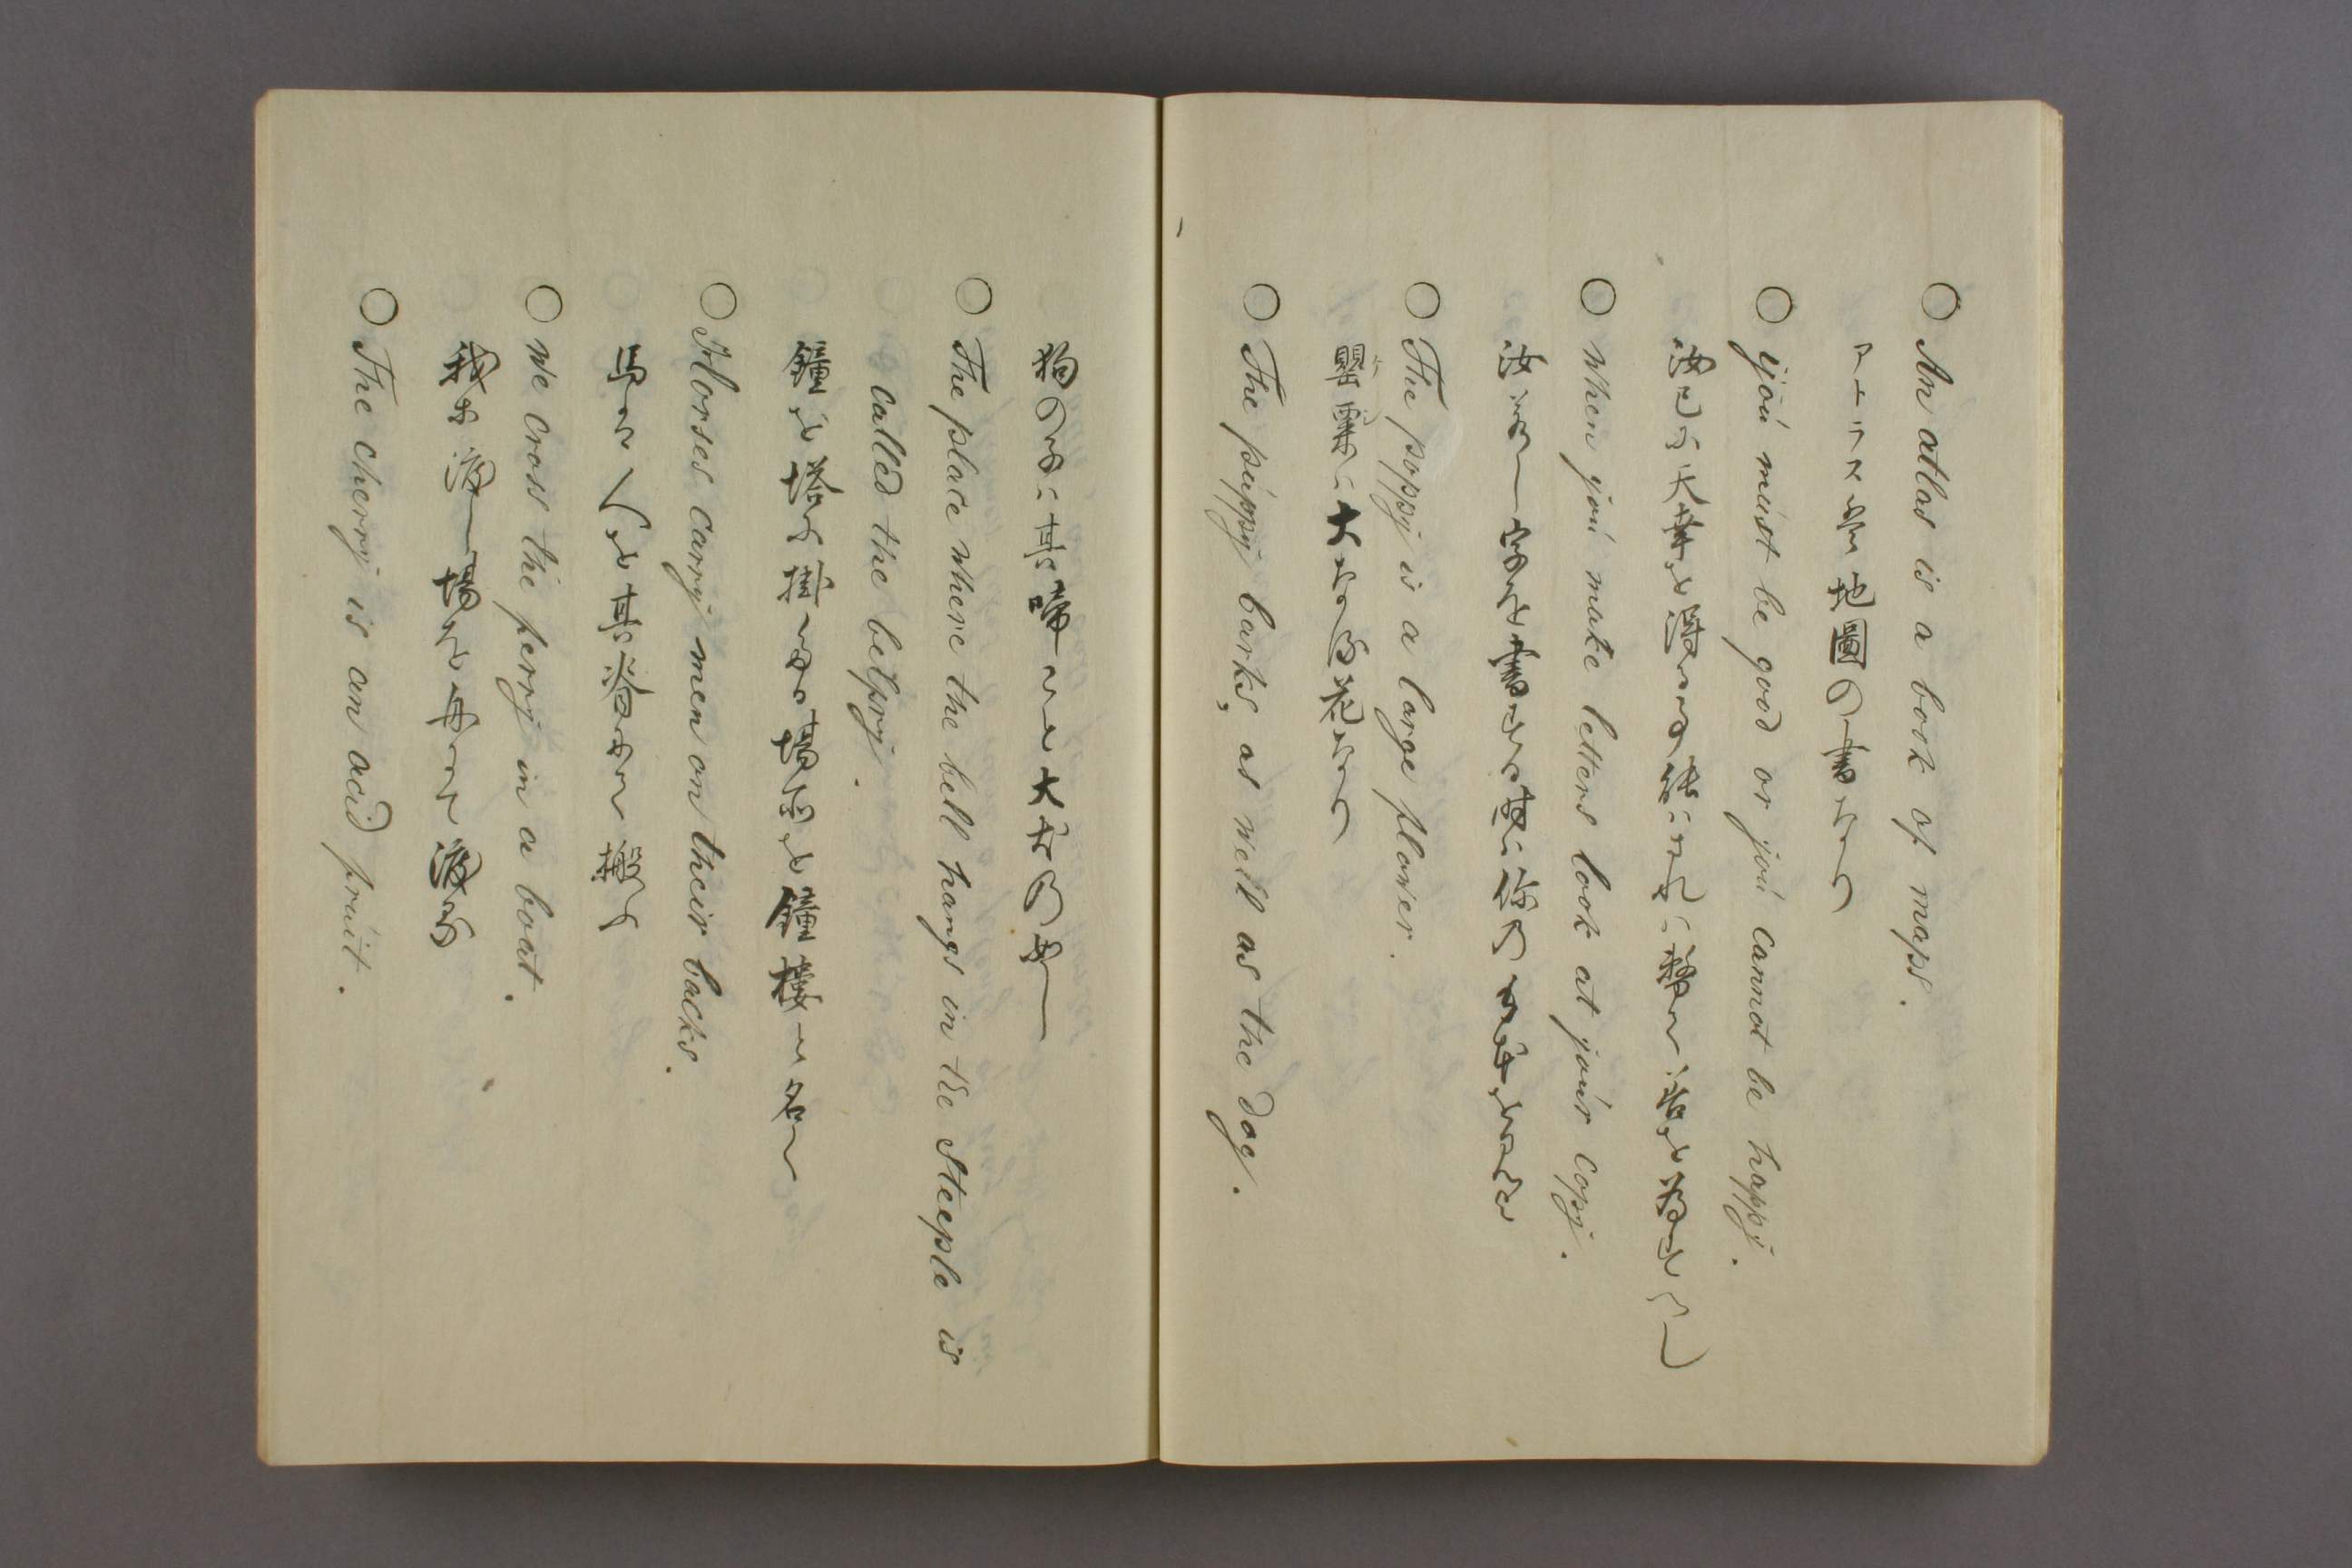 ○ An atlas is a book of maps.
アトラスハ地圖の書なり
○ you must be good or you cannot be happy.
汝
○ when you make letters look at your copy.
汝 字を書 其
○ The poppy is a large flower.
罌粟ハ大なる花なり
○ The puppy barks, as well as the dog.
狗の子ハ其啼 大犬の如し
○ The place where the bell hangs in the steeple is
called the belfry.
鐘を塔に掛 場所を鐘樓と名く
○ Horses carry men on their backs.
馬ハ人を其脊 搬ふ
○ we cross the ferry in a boat.
我等渡し場を舟にて渡る
○ The cherry is an acid fruit.